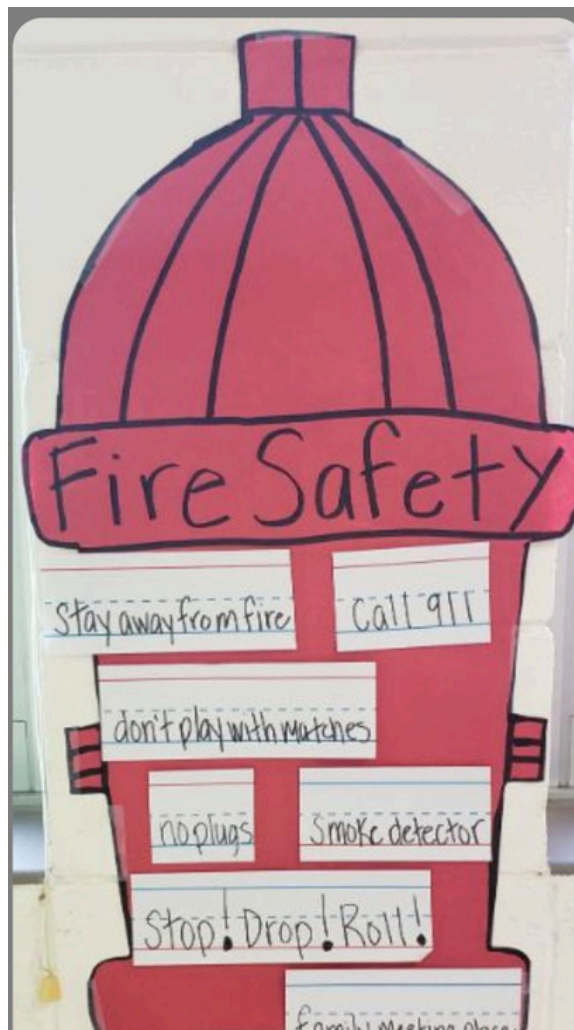 Fire Safety
stay away from fire
call 911
don't play with matches
no plugs
smoke detector
Stop! Drop! Roll!
family meeting place